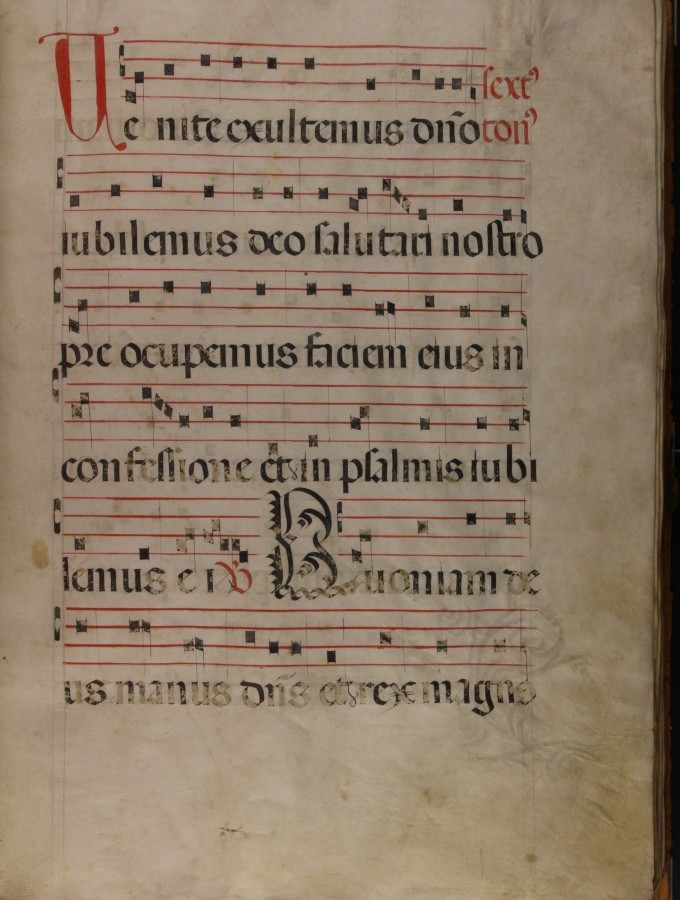 Ue nite exultemus dn̄o sextꝰ tonꝰ
iubilemus deo salutari nostro
pre ocupemus faciem eius in
confessione et in psalmis iubi
lemus e i ℟ Quoniam de
us manus dn̄s et rex magnus